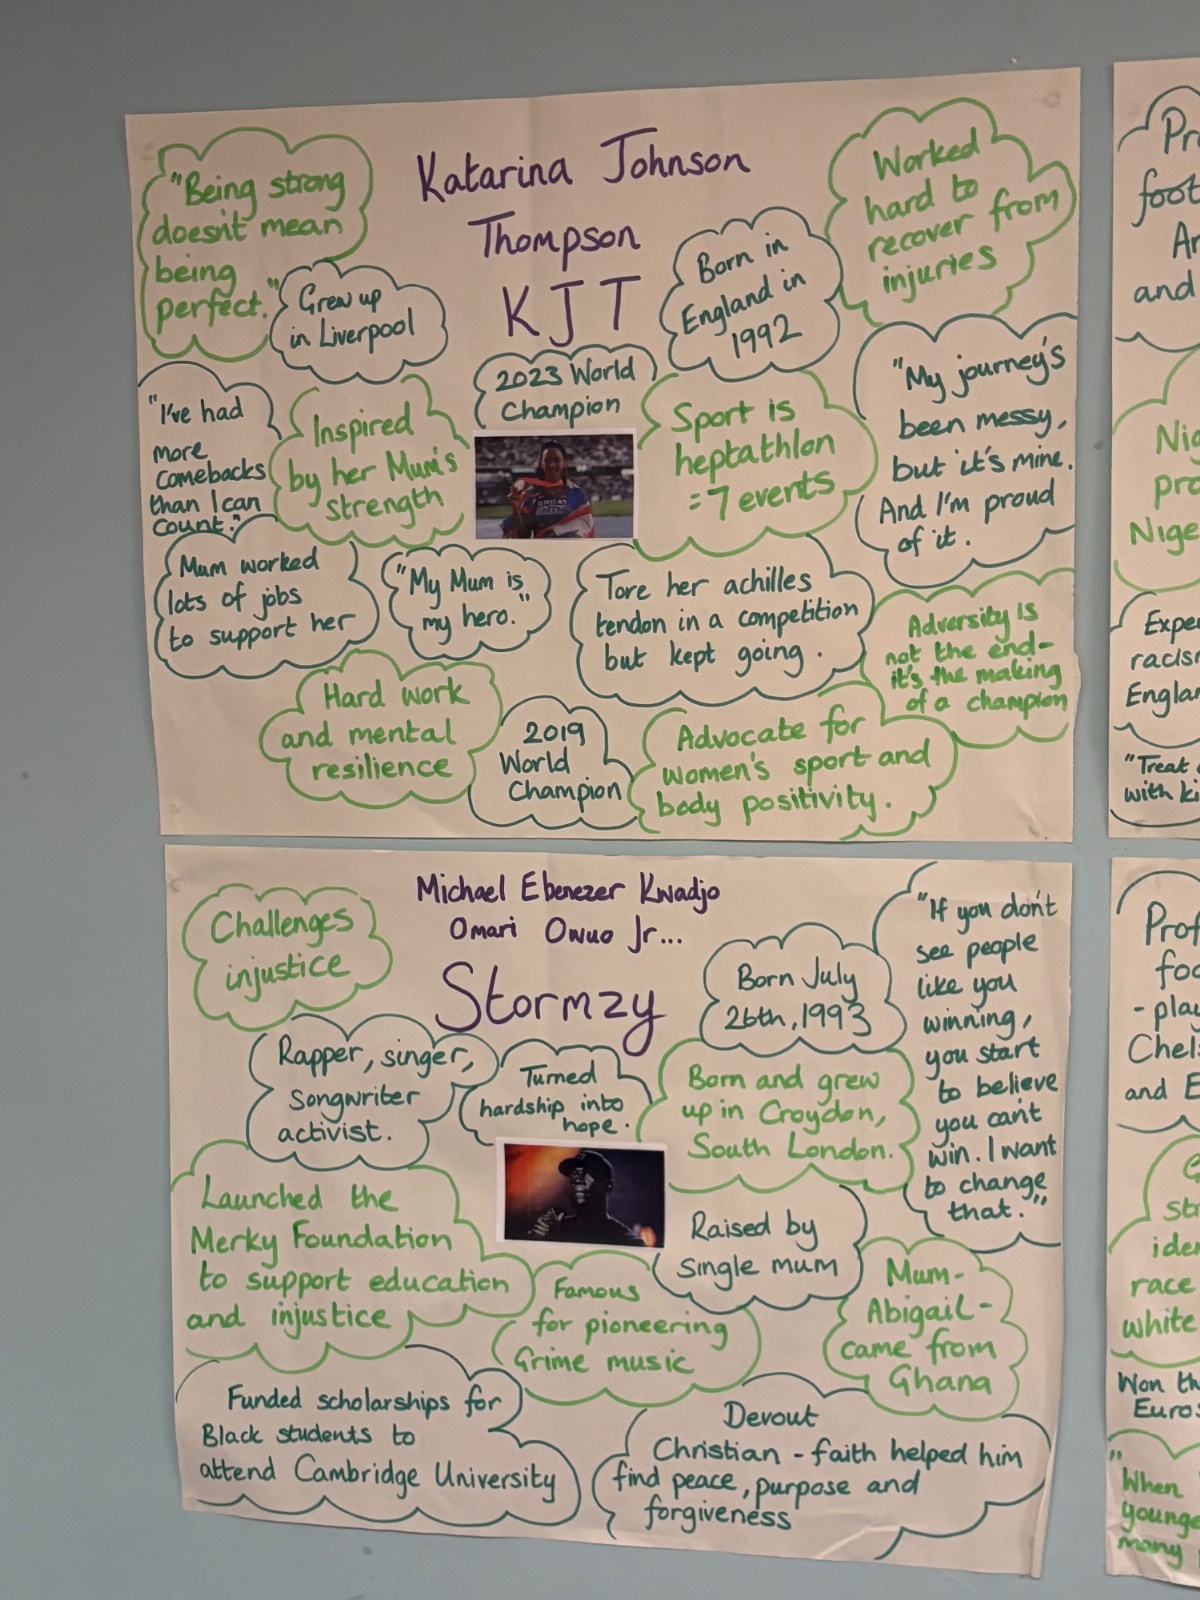 Katarina Johnson
Thompson
KJT
"Being strong
doesn't mean
being
perfect."
Grew up
in Liverpool
Born in
England in
1992
Worked
hard to
recover from
injuries
"I've had
more
comebacks
than I can
count."
Inspired
by her Mum's
strength
2023 World
Champion
Sport is
heptathlon
=7 events
"My journey's
been messy,
but it's mine.
And I'm proud
of it.
Mum worked
lots of jobs
to support her
"My Mum is
my hero."
Tore her achilles
tendon in a competition
but kept going.
Adversity is
not the end-
it's the making
of a champion
Hard work
and mental
resilience
2019
World
Champion
Advocate for
women's sport and
body positivity.
Michael Ebenezer Kwadjo
Omari Owuo Jr...
Stormzy
Challenges
injustice
Born July
26th, 1993
"If you don't
see people
like you
winning,
you start
to believe
you can't
win. I want
to change
that."
Rapper, singer,
songwriter
activist.
Turned
hardship into
hope.
Born and grew
up in Croydon,
South London.
Launched the
Merky Foundation
to support education
and injustice
Raised by
single mum
Famous
for pioneering
Grime music
Mum-
Abigail-
came from
Ghana
Funded scholarships for
Black students to
attend Cambridge University
Devout
Christian - faith helped him
find peace, purpose and
forgiveness
and
racis
Englan
"Treat
with ki
- play
Chels
and E
race
white
Won th
Euros
"When
younge
many